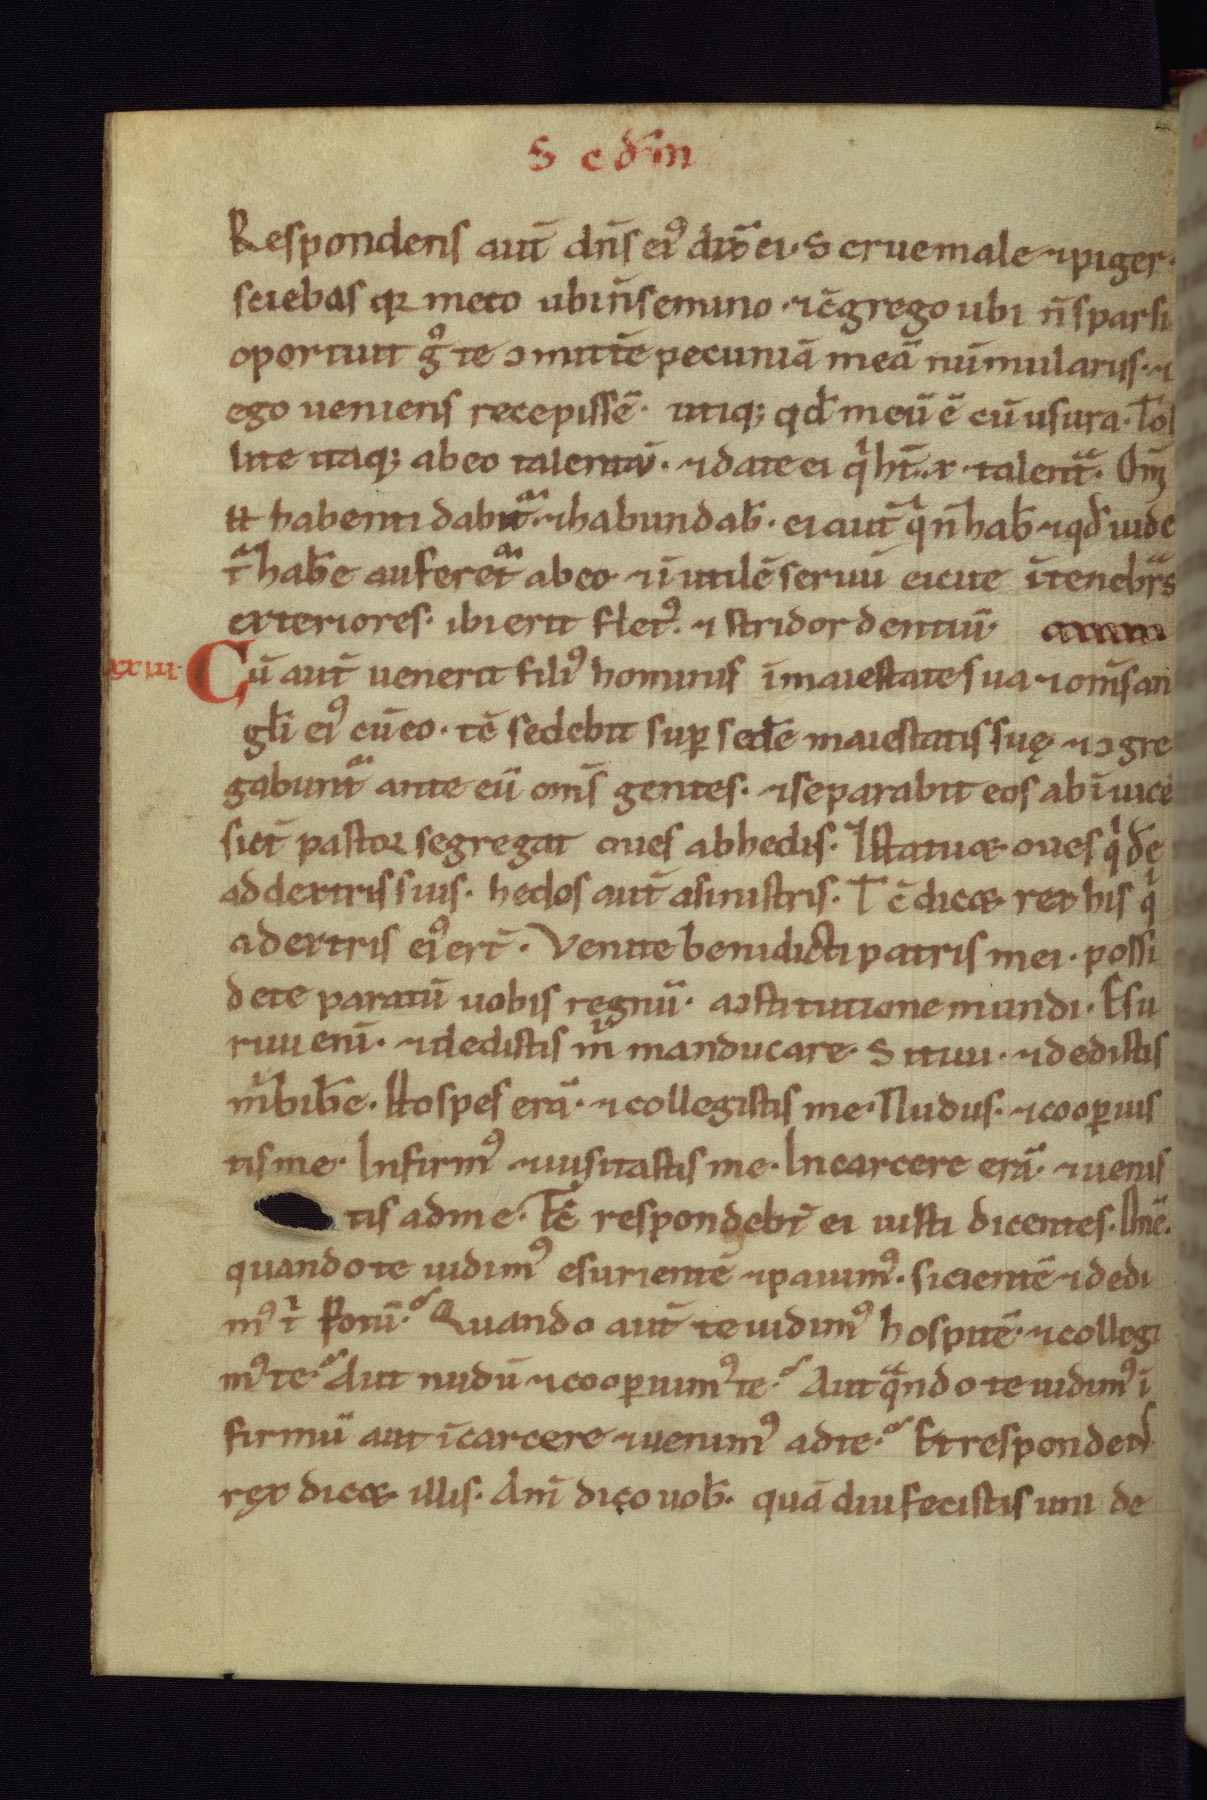 S cdm̄
Respondens aut̄ dn̄s ei⁹ dix̄ ei· Serue male ⁊ piger·
sciebas qꝛ meto ubi n̄ semino· ⁊ c̄grego ubi n̄ sparsi
oportuit gͦ te ꝯmitt̄e pecuniā meā nūmulariis· ⁊
ego ueniens recepissē· utiqꝫ qđ meū ē cū usura· Tol
lite itaqꝫ ab eo talentū· ⁊ date ei qͥ ht̄· x· talentᷓ· Om̄
tt habenti dabitᷓ· ⁊ habundab̄· ei aut̄ qͥ n̄ hab̄ ⁊ qđ uide
tᷓ hab̄e auferetᷓ ab eo· ⁊ īutilē seruū eicite ī tenebrᷓs
exteriores· ibi erit flet⁹· ⁊ stridor dentiū·
xxiii· Cū aut̄ uenerit fili⁹ hominis ī maiestate sua ⁊ om̄s an
gl̄i ei⁹ cū eo· tc̄ sedebit suꝑ sedē maiestatis suę ⁊ ꝯgre
gabuntᷓ ante eū om̄s gentes· ⁊ separabit eos ab īuicē
sict̄ pastor segregat oues ab hedis· Istatuet oues qͥdē
ad dextris suis· hedos aut̄ a sinistris· Tc̄ dicet rex his qͥ
a dextris ei⁹ ert̄· Venite benidicti patris mei· possi
dete paratū uobis regnū· a ꝯstitutione mundi· Esu
riui eni̅· ⁊ dedistis mͥ manducare· Sitiui· ⁊ dedistis
mͥ bib̄e· Hospes erā· ⁊ collegistis me· Nudus· ⁊ cooꝑuis
tis me· Infirm⁹ ⁊ uisitastis me· In carcere erā· ⁊ uenis
tis ad me· Tc̄ respondebt̄ ei iusti dicentes· Dn̄e·
quando te uidim⁹ esurientē ⁊ pauim⁹· sicientē ⁊ dedi
m⁹ tͥ Potū· Quando aut̄ te uidim⁹ hospitē· ⁊ collegi
m⁹ te· Aut nudū ⁊ cooꝑuim⁹ te· Aut qᷓndo te uidim⁹ ī
firmū aut ī carcere ⁊ uenim⁹ ad te· Et respondens
rex dicet illis· Am̄ dico uob̄· quā diu fecistis uni de